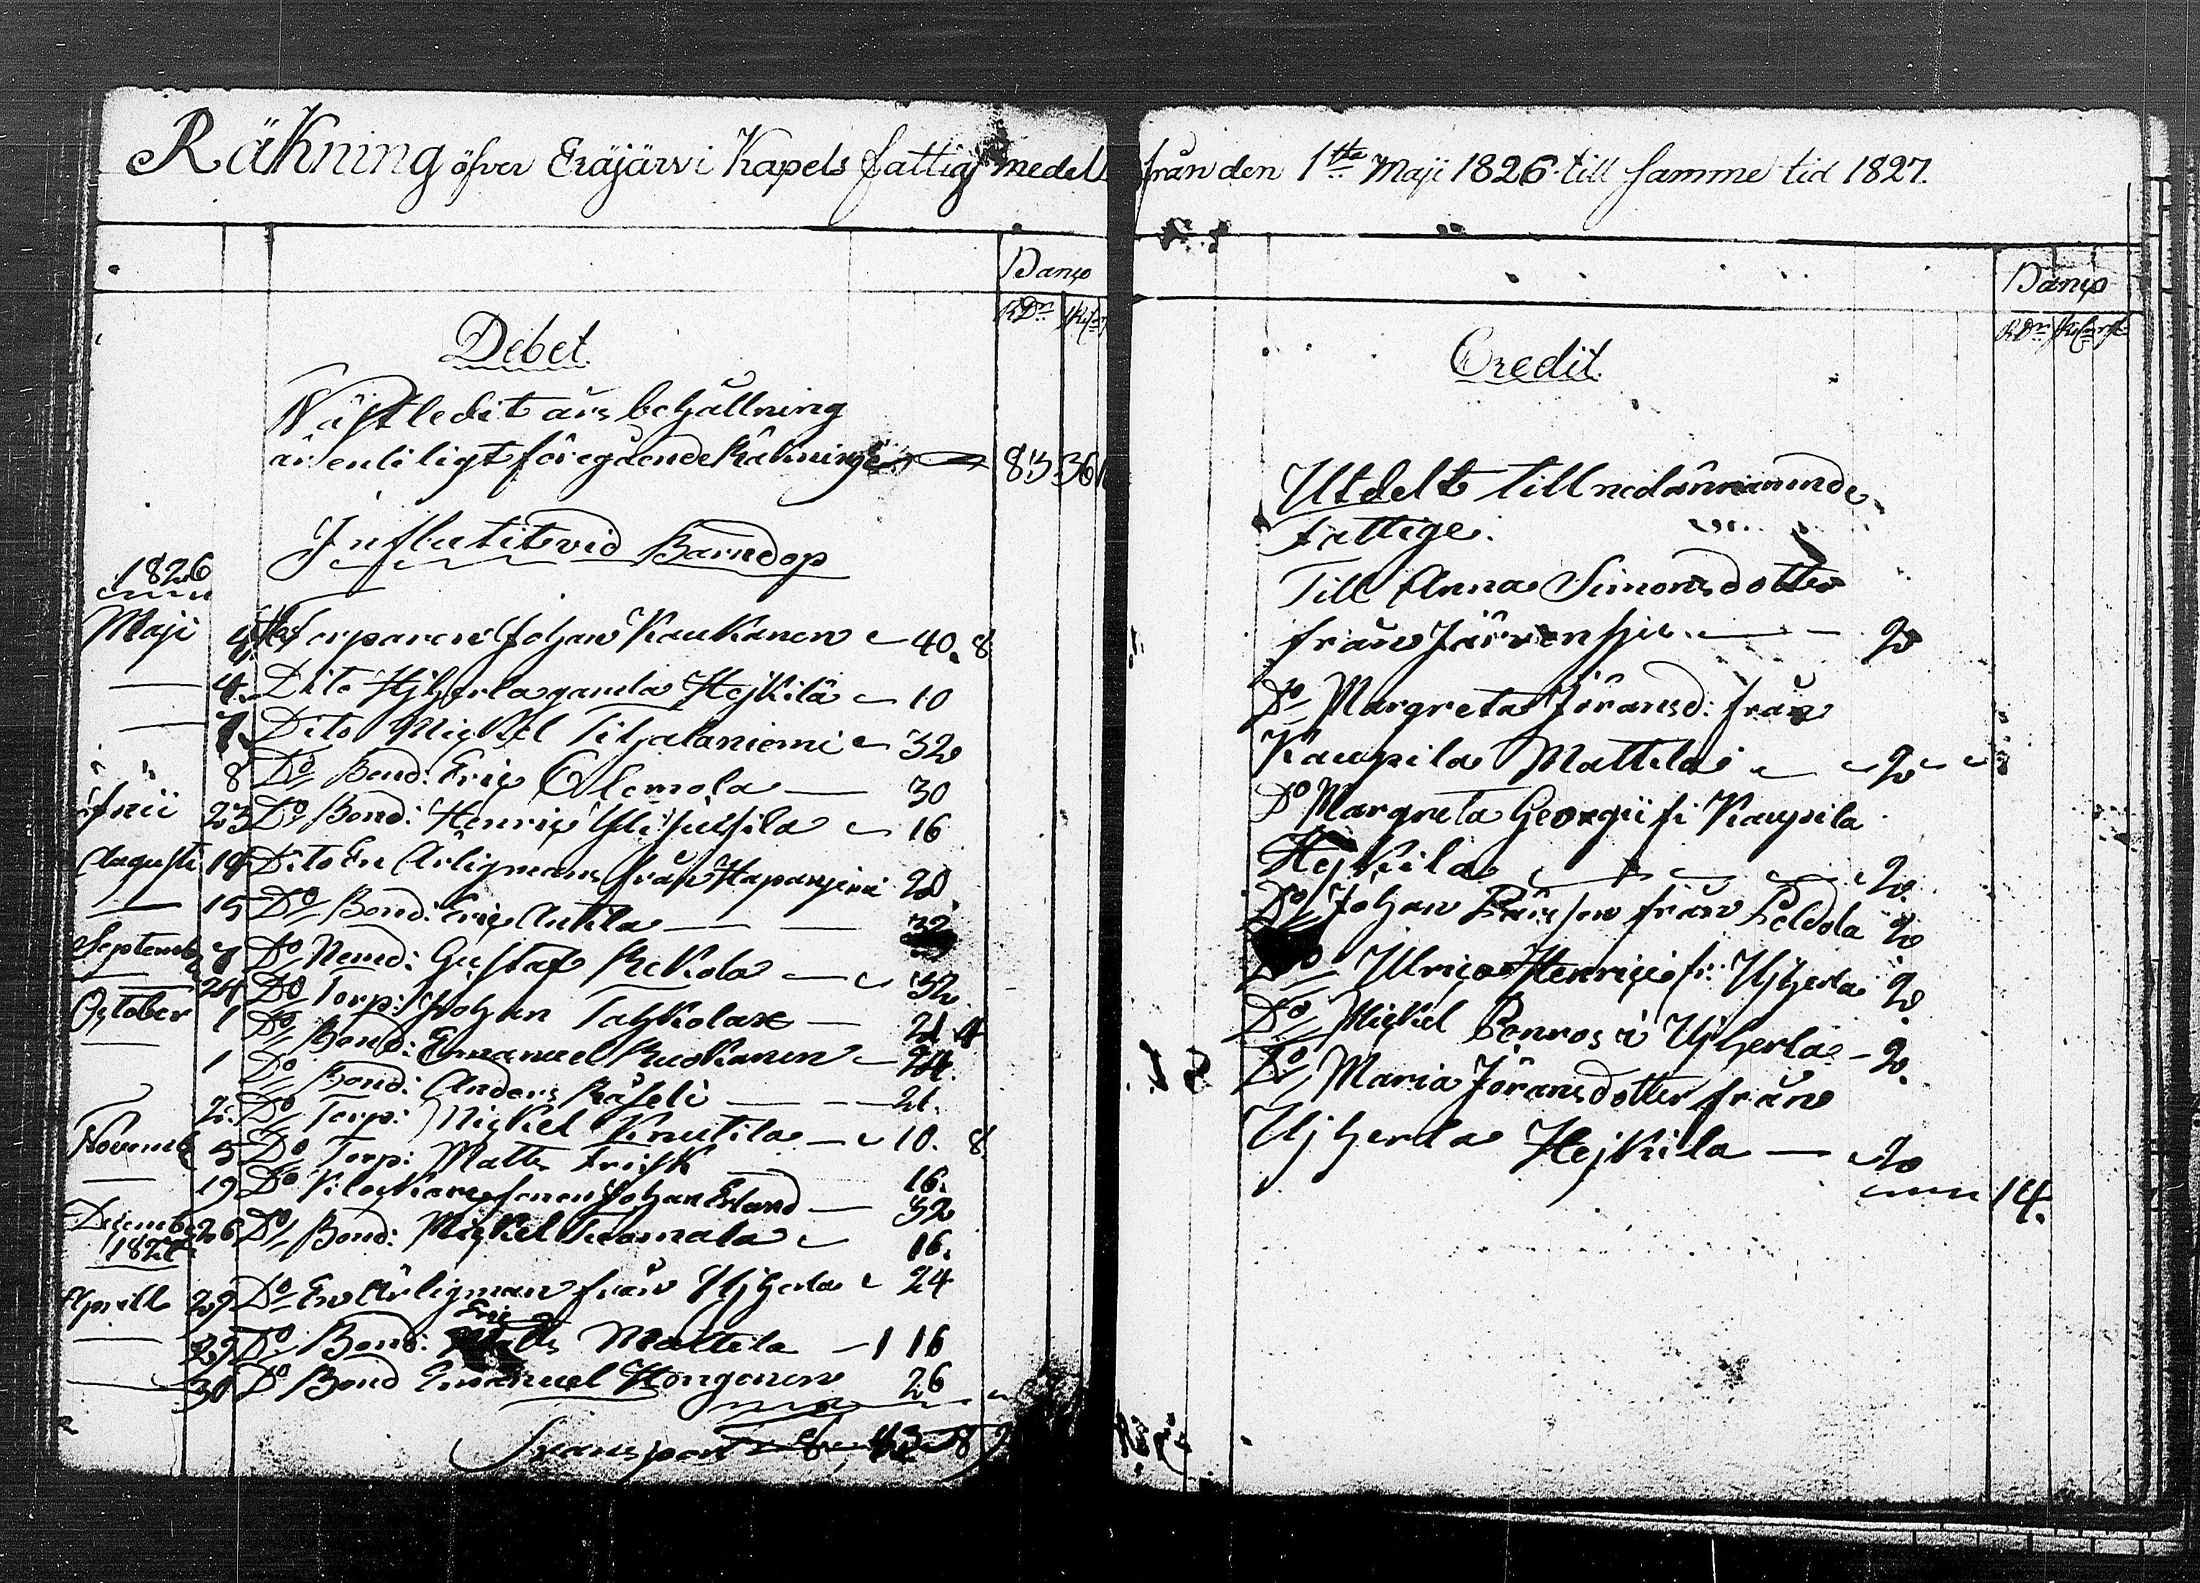 Räkning öfver Eräjärvi Kapels fattig medel från den 1sta Maji 1826 till samme tid 1827.
Banco
RDr Sk
Debet.
Nästledit års behållning
är enl ligt föregående Räkning 83 36
Influtit vid Barndop
1826
Maji Torparen Johan Kaukanen 40. 8
4. Dito Uiherla gamla Hejkilä 10
7. Dito Mickel Tihalaniemi 32
8 Do Bond: Eric Olemola 30
Junii 23 Do Bond: Henric 16
Augusti 19 Dito En Ärlig man från Haapaniemi 20
19 Do Bond: Eric Antila 32
Septemb 7 Do Nemd: Gustaf Rekola 32
24 Do Torp: Johan Tahkolax 21 4
October 1 Do Bond: Emanuel Ruokanen 24.
1 Do Bond: Anders Räseli 21.
2. Do Torp: Mickel Knutila 10. 8
Novemb 5 Do Torp: Matts Frisk 16.
19 Do Klockare Johan Erland 32
Decemb 26 Do Bond: Mickel Tuomala 16.
1827
Aprill 29 Do En Ärlig man från Ujherla 24
Eric
29 Do Bond: Mattila 1 16
30 Do Bond Emanuel Hongonen 26
Transport
Banco
RDr Sk
Credit.
Utdelt till nedannämnde
Fattige.
Till Anna Simonsdotter
från Järvenpä 2
Do Margreta Jöransd: från
Kaupila Mattila 2
Do Margreta Georgii fr Kaupila
Hejkila 2.
Do Johan Pärsson från Peldola 2
Do Ulrica Henrici fr: Ujherla 2.
Do Mickel Penros i Ujherla 2.
Do Maria Jöransdotter från
Ujherla Hejkila 2
14.